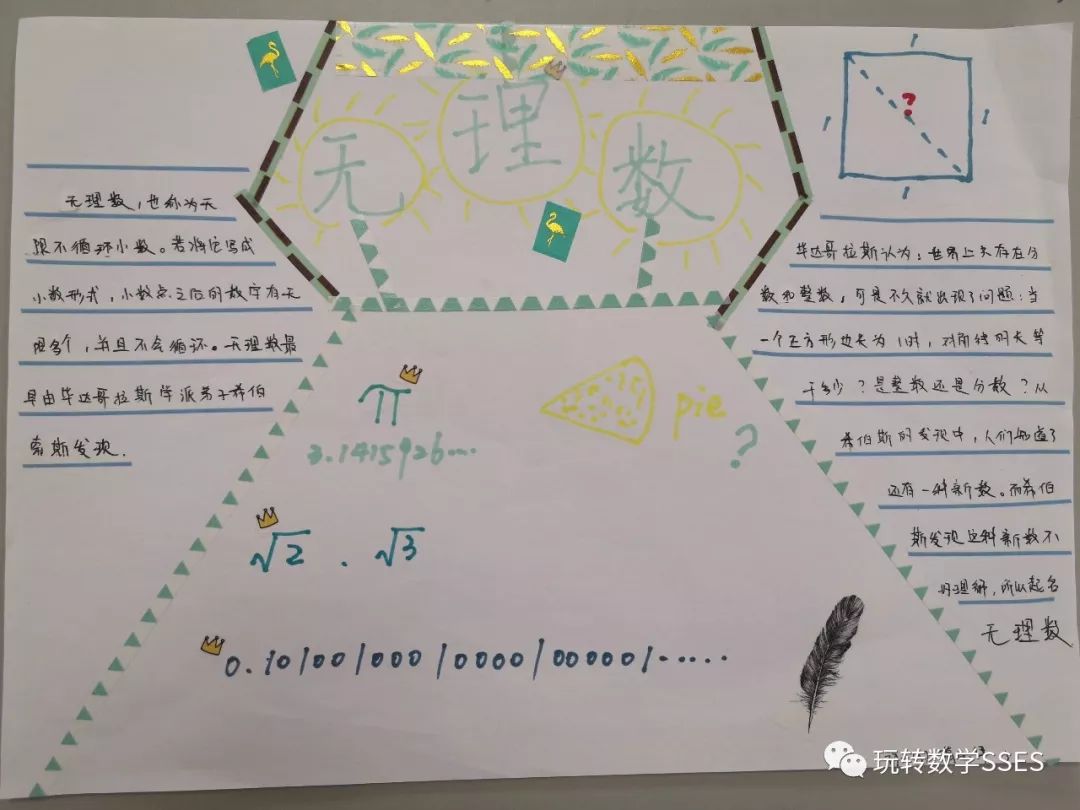 无理数
无理数，也称为无
限不循环小数。若将它写成
小数形式，小数点之后的数字有无
限多个，并且不会循环。无理数最
早由毕达哥拉斯学派弟子希伯
索斯发现.
π
3.1415926...
pie
?
√2 . √3
0.101001000100001000001......
1
1
?
1
1
毕达哥拉斯认为：世界上只存在分
数和整数，可是不久就出现了问题：当
一个正方形边长为1时，对角线的长等
于多少？是整数还是分数？从
希伯斯的发现中，人们知道了
还有一种新数。而希伯
斯发现这种新数不
好理解，所以起名
无理数
玩转数学SSES